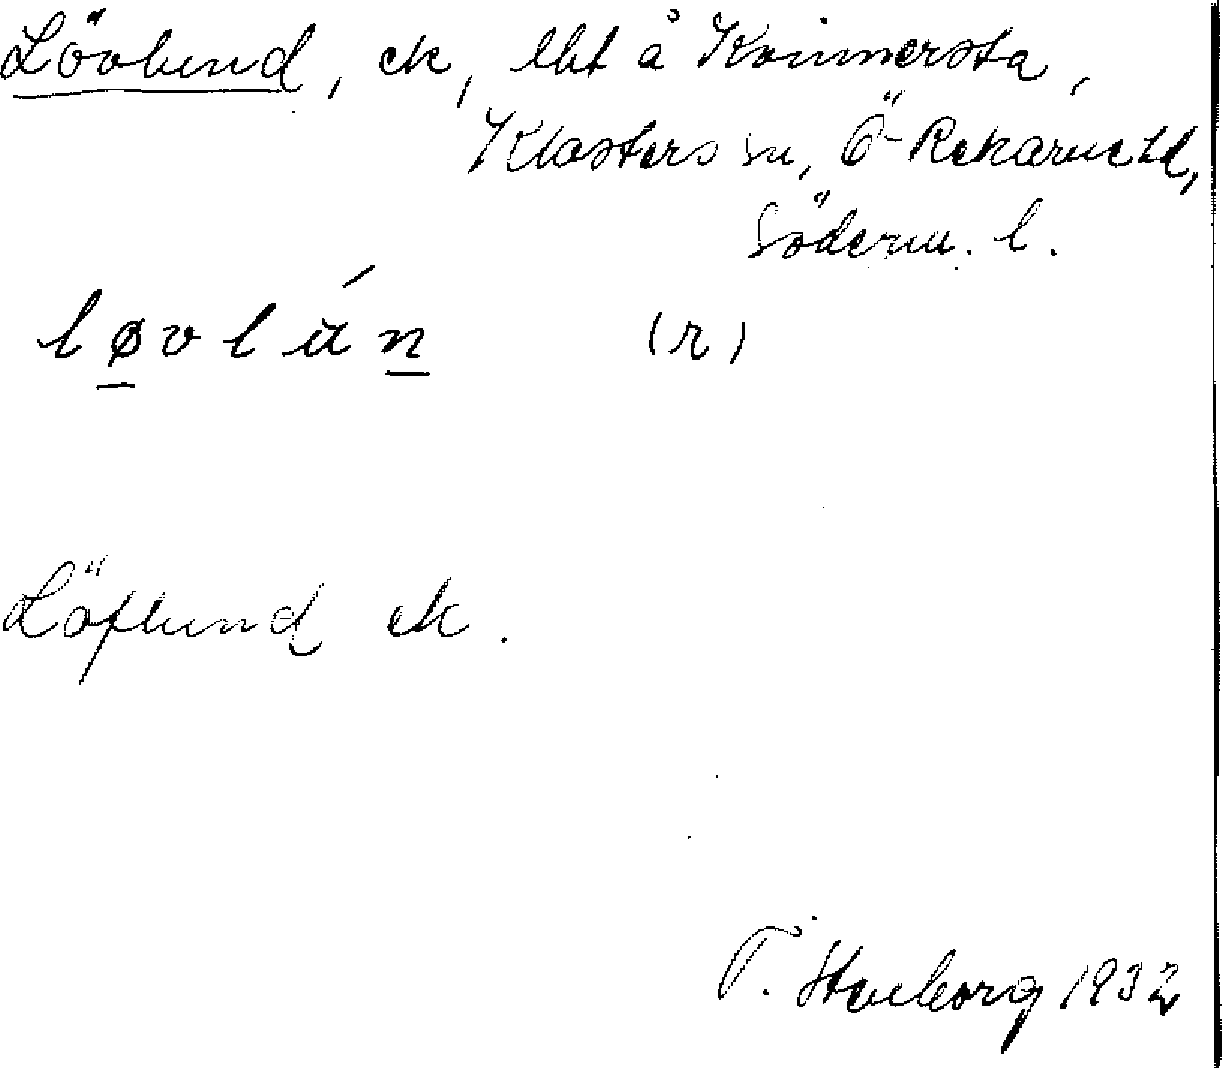 Lövlund, ek, lht å Kvinnersta,
Klosters sn, Ö-Rekarne hd,
Söderm. l.
løvlún (r)
Löflund ek.
T. Stenborg 1932